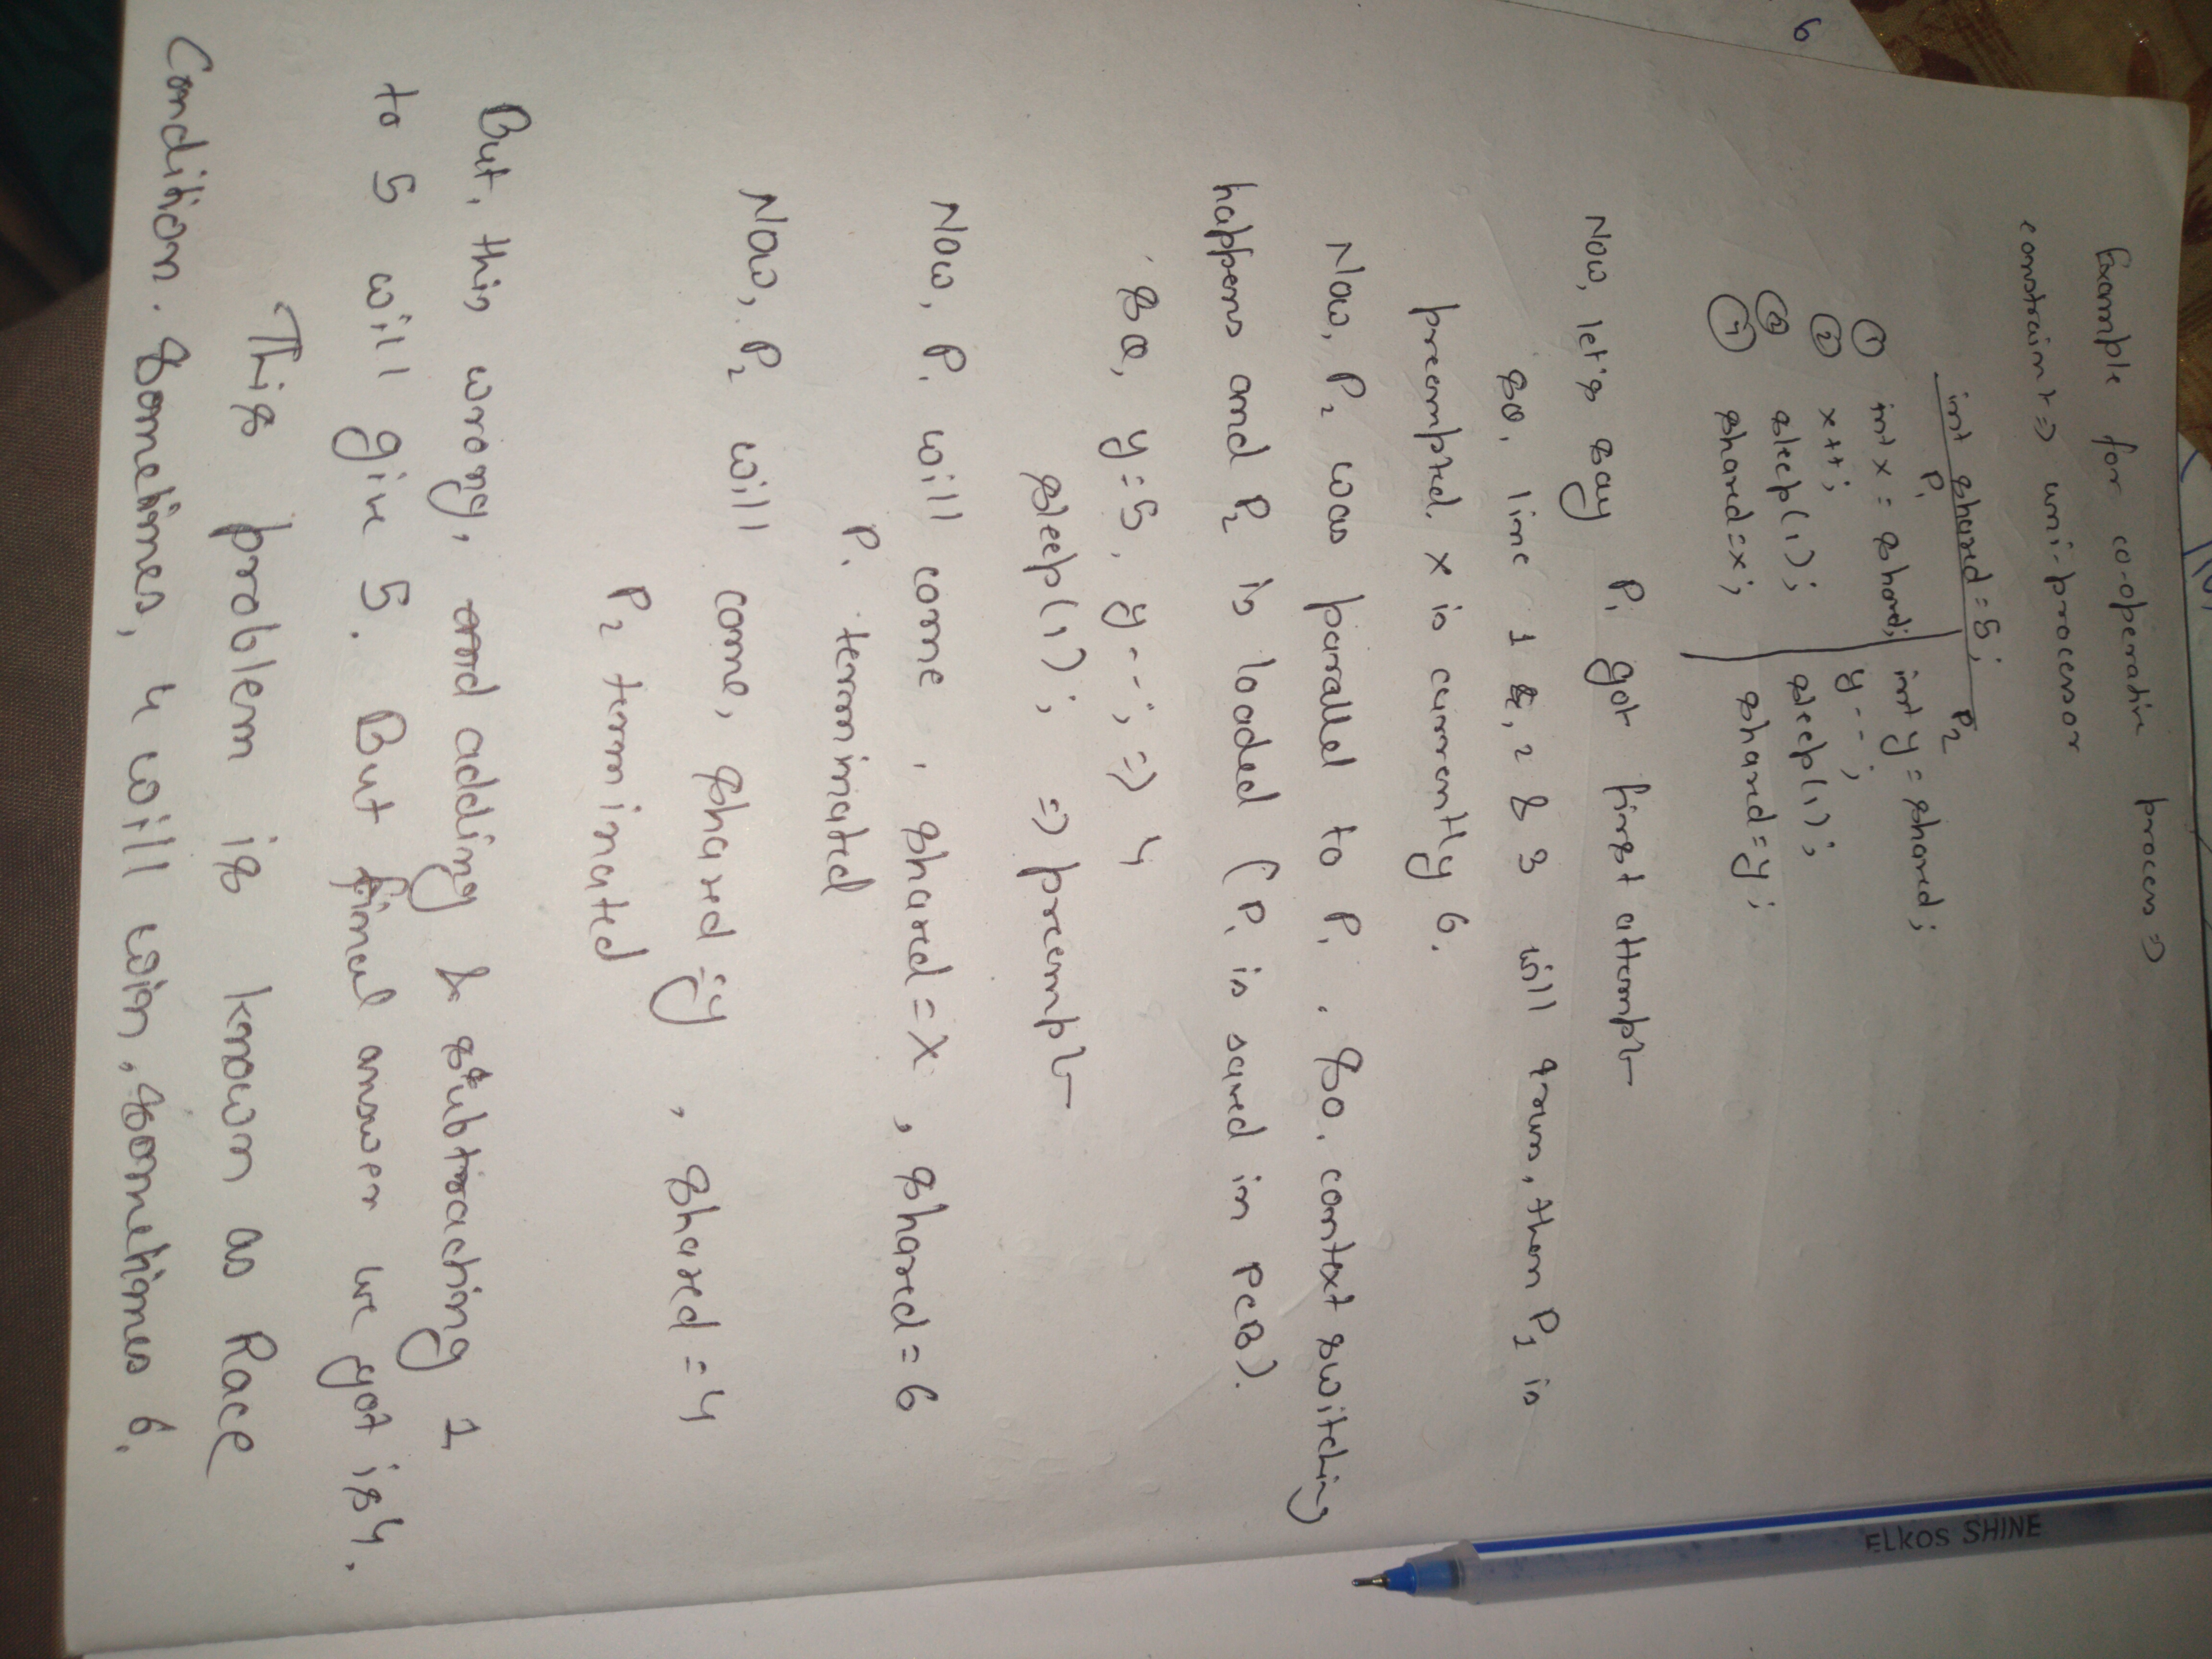 6
Example for co-operative process =>
constraint => uni-processor
int shared = 5;
P1 P2
① int x = shared; int y = shared;
② x++; y--;
③ sleep(1); sleep(1);
④ shared = x; shared = y;
Now, let's say P1 got first attempt
So, line 1, 2 & 3 will run, then P1 is
preempted. x is currently 6.
Now, P2 was parallel to P1. So, context switching
happens and P2 is loaded (P1 is saved in PCB).
So, y = 5, y--; => 4
sleep(1); => preempt
Now, P1 will come, shared = x, shared = 6
P1 terminated
Now, P2 will come, shared = y, shared = 4
P2 terminated
But, this wrong, and adding & subtracting 1
to 5 will give 5. But final answer we got is 4.
This problem is known as Race
Condition. Sometimes, 4 will win, sometimes 6.
ELKOS SHINE